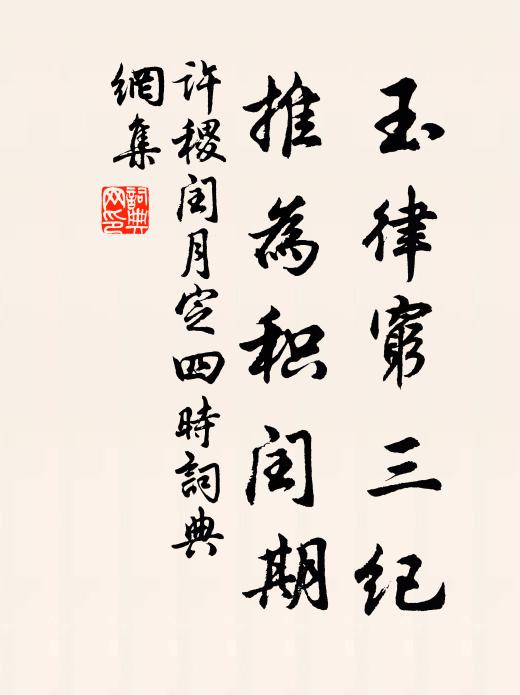 玉律窮三纪
推為积闰期
許稷闰月定四時詞典
網集
詞典
网印